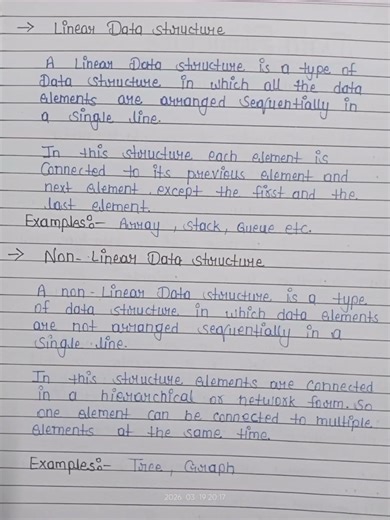 → Linear Data structure
A Linear Data structure is a type of
Data structure in which all the data
elements are arranged sequentially in
a single line.
In this structure each element is
connected to its previous element and
next element except the first and the
last element.
Examples:- Array, stack, Queue etc.
→ Non-Linear Data structure
A non-Linear Data structure is a type
of data structure in which data elements
are not arranged sequentially in a
single line.
In this structure elements are connected
in a hierarchical or network form. So
one element can be connected to multiple
elements at the same time.
Examples:- Tree, Graph
2026.03.19 20:17